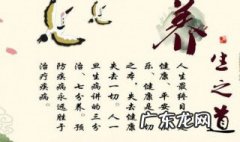 养
生之道
人生最终目
健康、平安
乐、健康是
之本,失去健康
失去一切。人一
生病讲的三分
治、七分养。预
防疾病永远胜于
治疗疾病。
广东龙网